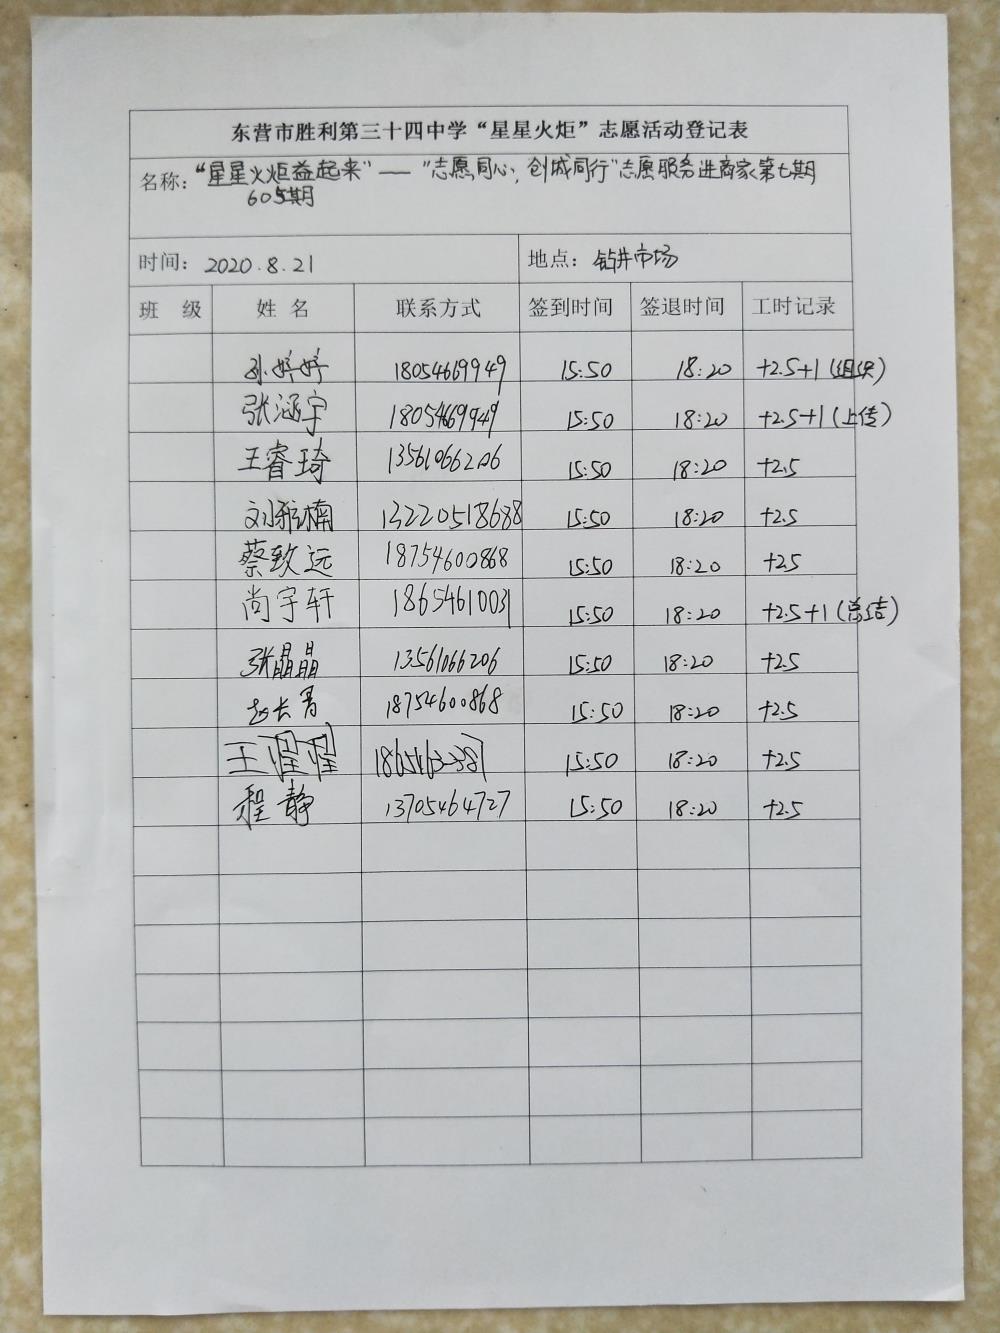 东营市胜利第三十四中学“星星火炬”志愿活动登记表
名称：“星星火炬益起来”——“志愿同心，创城同行”志愿服务进商家第七期
605期
时间：2020.8.21 地点：钻井市场
班 级 姓 名 联系方式 签到时间 签退时间 工时记录
孙婷婷 18054669949 15:50 18:20 +2.5+1(组织)
张涵宇 18054669949 15:50 18:20 +2.5+1(上传)
王睿琦 13561066206 15:50 18:20 +2.5
刘 楠 13220518688 15:50 18:20 +2.5
蔡致远 18754600868 15:50 18:20 +2.5
尚宇轩 18654610031 15:50 18:20 +2.5+1(总结)
张晶晶 13561066206 15:50 18:20 +2.5
赵长青 18754600868 15:50 18:20 +2.5
王 15:50 18:20 +2.5
程静 13705464727 15:50 18:20 +2.5